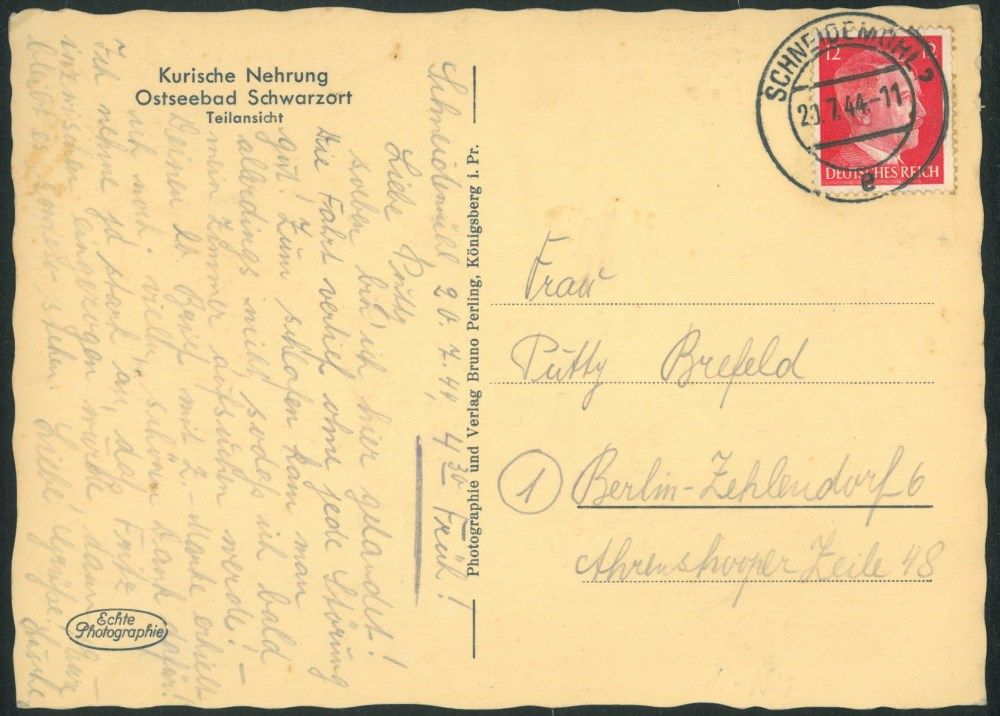 Kurische Nehrung
Ostseebad Schwarzort
Teilansicht
Schneidemühl 20.7.44, 4 30 Früh!
Liebe Putty
soeben bin ich hier gelandet!
Die Fahrt verlief ohne jede Störung
gut! Zum schlafen kam man
allerdings nicht, sodaß ich bald
mein Zimmer aufsuchen werde! –
Deinen Brief mit erhielt
ich noch. vielen schönen Dank dafür!
Ich nehme jd stark an, daß Fritz
inzwischen eingezogen wurde, dann
bleibt es
Liebe Grüße
Echte
Photographie
Photographie und Verlag Bruno Perling, Königsberg i. Pr.
SCHNEIDEMÜHL 2
20.7.44-11
e
12
DEUTSCHES REICH
Frau
Putty Brefeld
1 Berlin-Zehlendorf-6
Ahrenshooper Zeile 48